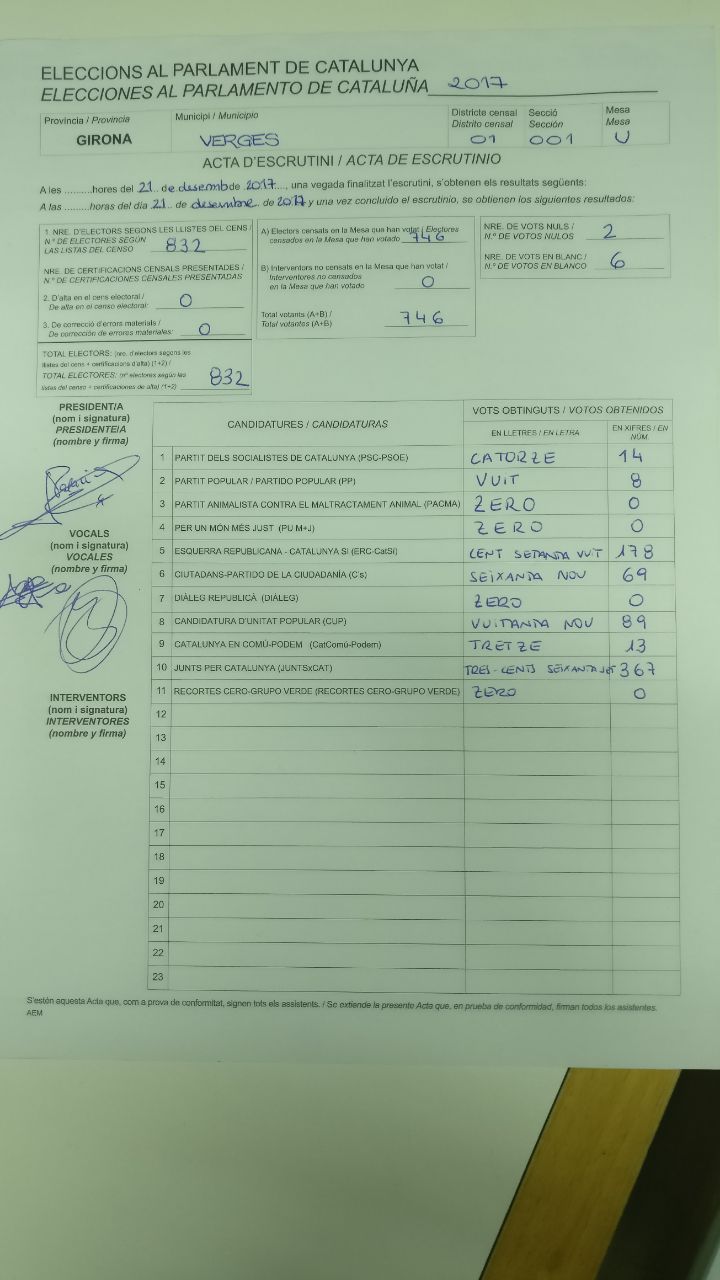 ELECCIONS AL PARLAMENT DE CATALUNYA
ELECCIONES AL PARLAMENTO DE CATALUÑA 2017
Província / Provincia
GIRONA
Municipi / Municipio
VERGES
Districte censal
Distrito censal
01
Secció
Sección
001
Mesa
Mesa
U
ACTA D'ESCRUTINI / ACTA DE ESCRUTINIO
A les .........hores del 21 de desemb de 2017...., una vegada finalitzat l'escrutini, s'obtenen els resultats següents:
A las .........horas del día 21 de desembre de 2017 y una vez concluido el escrutinio, se obtienen los siguientes resultados:
1. NRE. D'ELECTORS SEGONS LES LLISTES DEL CENS /
N.º DE ELECTORES SEGÚN
LAS LISTAS DEL CENSO 832
NRE. DE CERTIFICACIONS CENSALS PRESENTADES /
N.º DE CERTIFICACIONES CENSALES PRESENTADAS
2. D'alta en el cens electoral /
De alta en el censo electoral: 0
3. De correcció d'errors materials /
De corrección de errores materiales: 0
TOTAL ELECTORS: (nre. d'electors segons les
llistes del cens + certificacions d'alta) (1+2) /
TOTAL ELECTORES: (nº electores según las
listas del censo + certificaciones de alta) (1+2) 832
A) Electors censats en la Mesa que han votat / Electores
censados en la Mesa que han votado 746
B) Interventors no censats en la Mesa que han votat /
Interventores no censados
en la Mesa que han votado 0
Total votants (A+B) /
Total votantes (A+B) 746
NRE. DE VOTS NULS /
N.º DE VOTOS NULOS 2
NRE. DE VOTS EN BLANC /
N.º DE VOTOS EN BLANCO 6
PRESIDENT/A
(nom i signatura)
PRESIDENTE/A
(nombre y firma)
VOCALS
(nom i signatura)
VOCALES
(nombre y firma)
INTERVENTORS
(nom i signatura)
INTERVENTORES
(nombre y firma)
CANDIDATURES / CANDIDATURAS
VOTS OBTINGUTS / VOTOS OBTENIDOS
EN LLETRES / EN LETRA
EN XIFRES / EN
NÚM.
1 PARTIT DELS SOCIALISTES DE CATALUNYA (PSC-PSOE) CATORZE 14
2 PARTIT POPULAR / PARTIDO POPULAR (PP) VUIT 8
3 PARTIT ANIMALISTA CONTRA EL MALTRACTAMENT ANIMAL (PACMA) ZERO 0
4 PER UN MÓN MÉS JUST (PU M+J) ZERO 0
5 ESQUERRA REPUBLICANA - CATALUNYA SÍ (ERC-CatSí) CENT SETANTA VUIT 178
6 CIUTADANS-PARTIDO DE LA CIUDADANÍA (C's) SEIXANTA NOU 69
7 DIÀLEG REPUBLICÀ (DIÀLEG) ZERO 0
8 CANDIDATURA D'UNITAT POPULAR (CUP) VUITANTA NOU 89
9 CATALUNYA EN COMÚ-PODEM (CatComú-Podem) TRETZE 13
10 JUNTS PER CATALUNYA (JUNTSxCAT) TRES-CENTS SEIXANTA SET 367
11 RECORTES CERO-GRUPO VERDE (RECORTES CERO-GRUPO VERDE) ZERO 0
12
13
14
15
16
17
18
19
20
21
22
23
S'estén aquesta Acta que, com a prova de conformitat, signen tots els assistents. / Se extiende la presente Acta que, en prueba de conformidad, firman todos los asistentes.
AEM